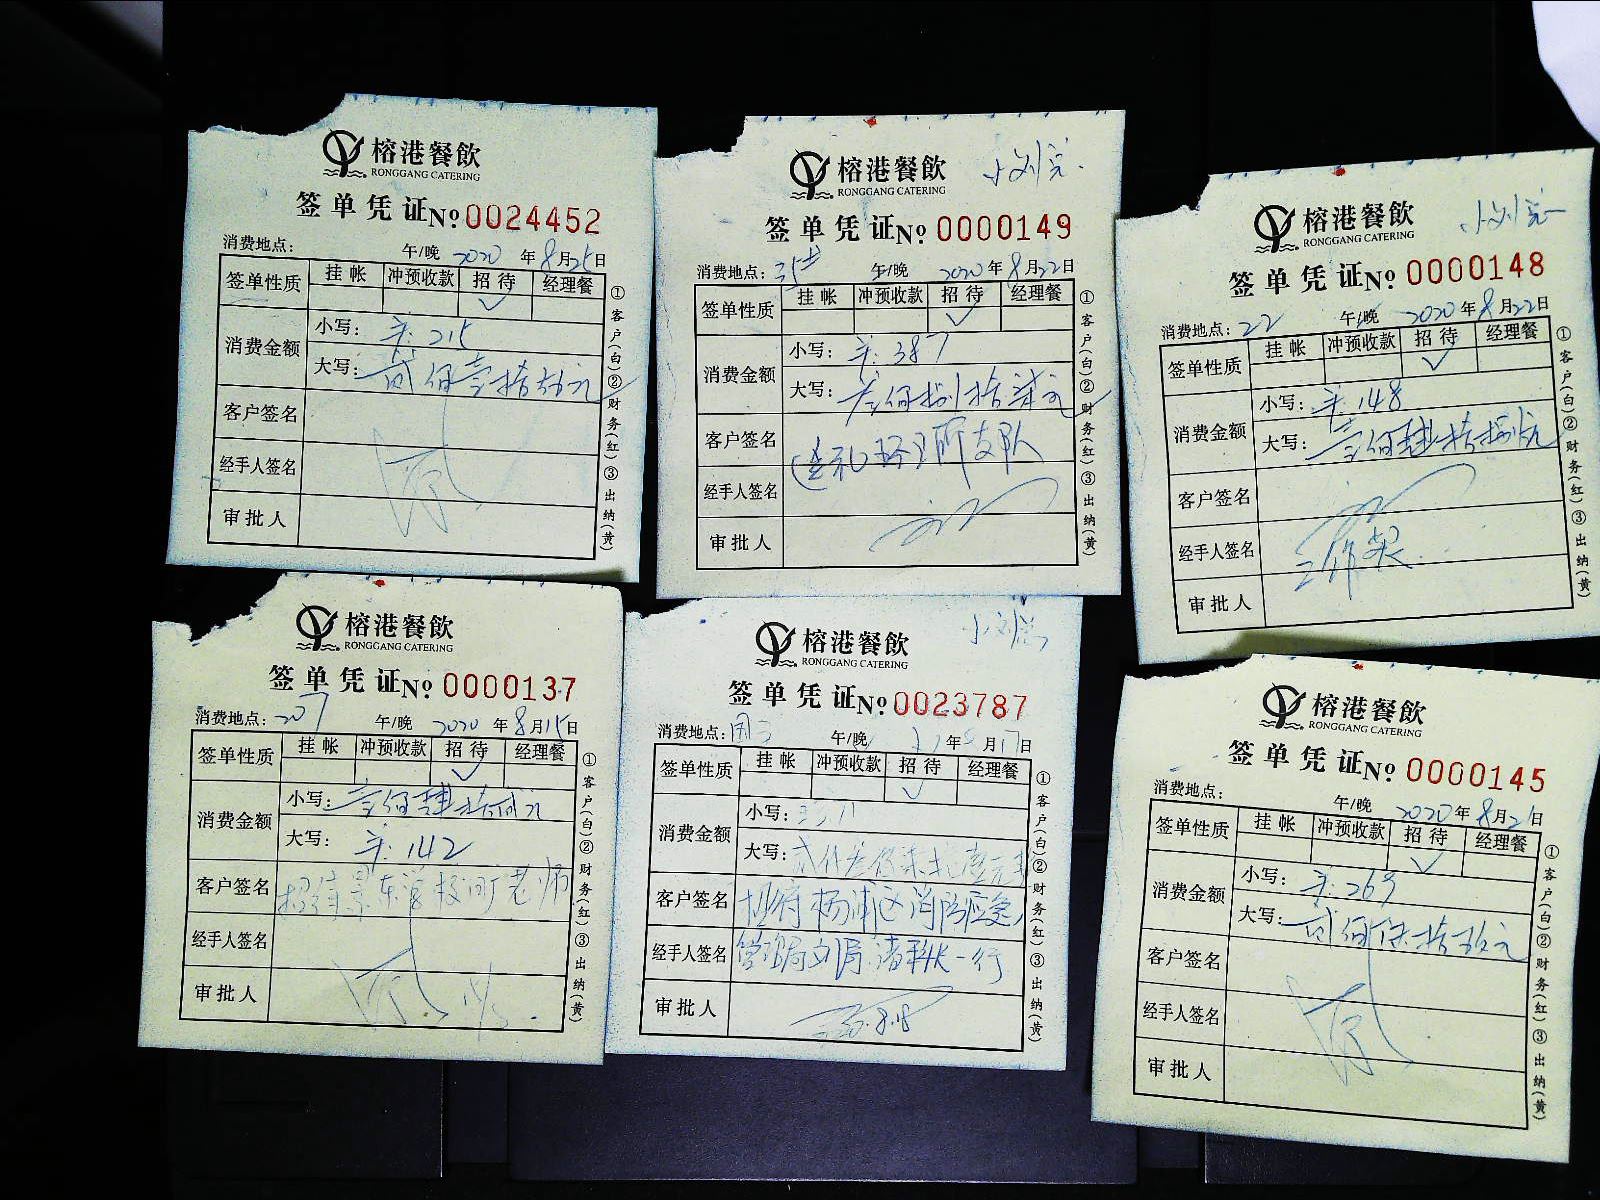 榕港餐飲
RONGGANG CATERING
签单凭证 №0024452
消费地点: 午/晚 2020年8月25日
签单性质 挂帐 冲预收款 招待 经理餐
✓
消费金额 小写: 215
大写: 贰佰壹拾伍元
客户签名
经手人签名
审批人
①客户(白)②财务(红)③出纳(黄)
榕港餐飲
RONGGANG CATERING
签单凭证 №0000149
消费地点: 午/晚 2020年8月22日
签单性质 挂帐 冲预收款 招待 经理餐
✓
消费金额 小写: 387
大写: 叁佰捌拾柒元
客户签名
经手人签名
审批人
①客户(白)②财务(红)③出纳(黄)
榕港餐飲
RONGGANG CATERING
签单凭证 №0000148
消费地点: 22 午/晚 2020年8月22日
签单性质 挂帐 冲预收款 招待 经理餐
✓
消费金额 小写: 148
大写: 壹佰肆拾捌元
客户签名
经手人签名 工作餐
审批人
①客户(白)②财务(红)③出纳(黄)
榕港餐飲
RONGGANG CATERING
签单凭证 №0000137
消费地点: 207 午/晚 2020年8月15日
签单性质 挂帐 冲预收款 招待 经理餐
✓
消费金额 小写: 壹佰肆拾贰元
大写: 142
客户签名 老师
经手人签名
审批人
①客户(白)②财务(红)③出纳(黄)
榕港餐飲
RONGGANG CATERING
签单凭证 №0023787
消费地点: 午/晚 年 月17日
签单性质 挂帐 冲预收款 招待 经理餐
✓
消费金额 小写:
大写:
客户签名 杨浦区消防应急
经手人签名 管理局 一行
审批人 8.18
①客户(白)②财务(红)③出纳(黄)
榕港餐飲
RONGGANG CATERING
签单凭证 №0000145
消费地点: 午/晚 2020年8月21日
签单性质 挂帐 冲预收款 招待 经理餐
✓
消费金额 小写: 265
大写: 贰佰陆拾伍元
客户签名
经手人签名
审批人
①客户(白)②财务(红)③出纳(黄)